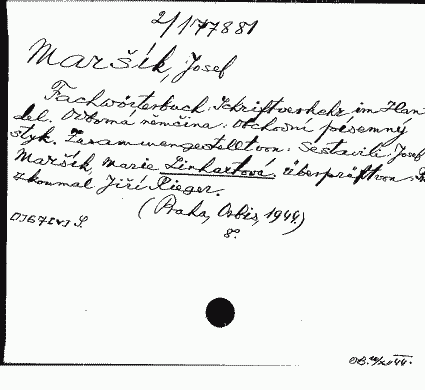 2/177881
Maršík, Josef
Fachwörterbuch. Schriftverkehr im Han-
del. Odborná němčina. Obchodní písemný
styk. Zusammengestellt von. Sestavili: Josef
Maršík, Marie Linhartová. Überprüft von.
zkoumal Jiří Rieger.
(Praha, Orbis, 1944)
8°.